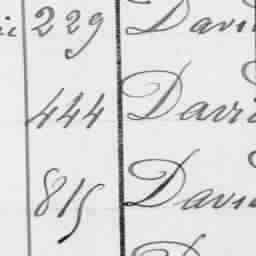 229 Davi
444 Davi
815 Davi